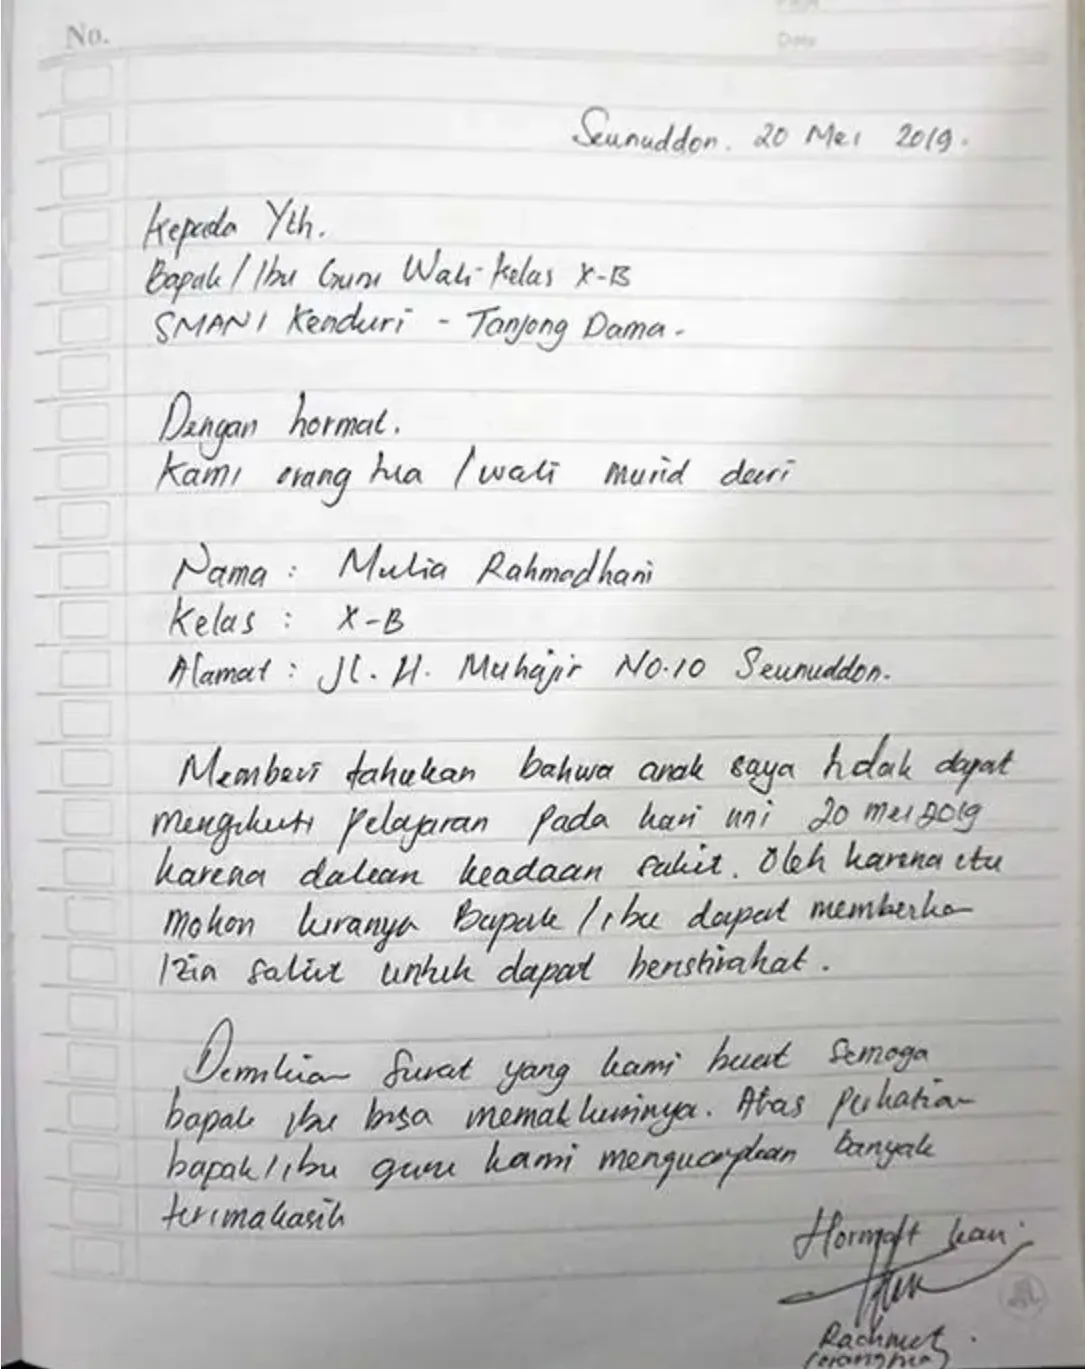 No.
Date
Seunuddon. 20 Mei 2019.
Kepada Yth.
Bapak / Ibu Guru Wali Kelas X-B
SMAN 1 Kenduri - Tanjong Dama -
Dengan hormat.
Kami orang tua / wali murid dari
Nama : Mulia Rahmadhani
Kelas : X-B
Alamat : Jl. H. Muhajir No.10 Seunuddon.
Memberi tahukan bahwa anak saya tidak dapat
mengikuti pelajaran pada hari ini 20 mei 2019
karena dalam keadaan sakit. Oleh karena itu
mohon kiranya Bapak / ibu dapat memberikan
izin sakit untuk dapat beristirahat.
Demikian surat yang kami buat semoga
bapak ibu bisa memakluminya. Atas perhatian
bapak / ibu guru kami mengucapkan banyak
terimakasih
Hormat kami
Rachmat
(orang tua)